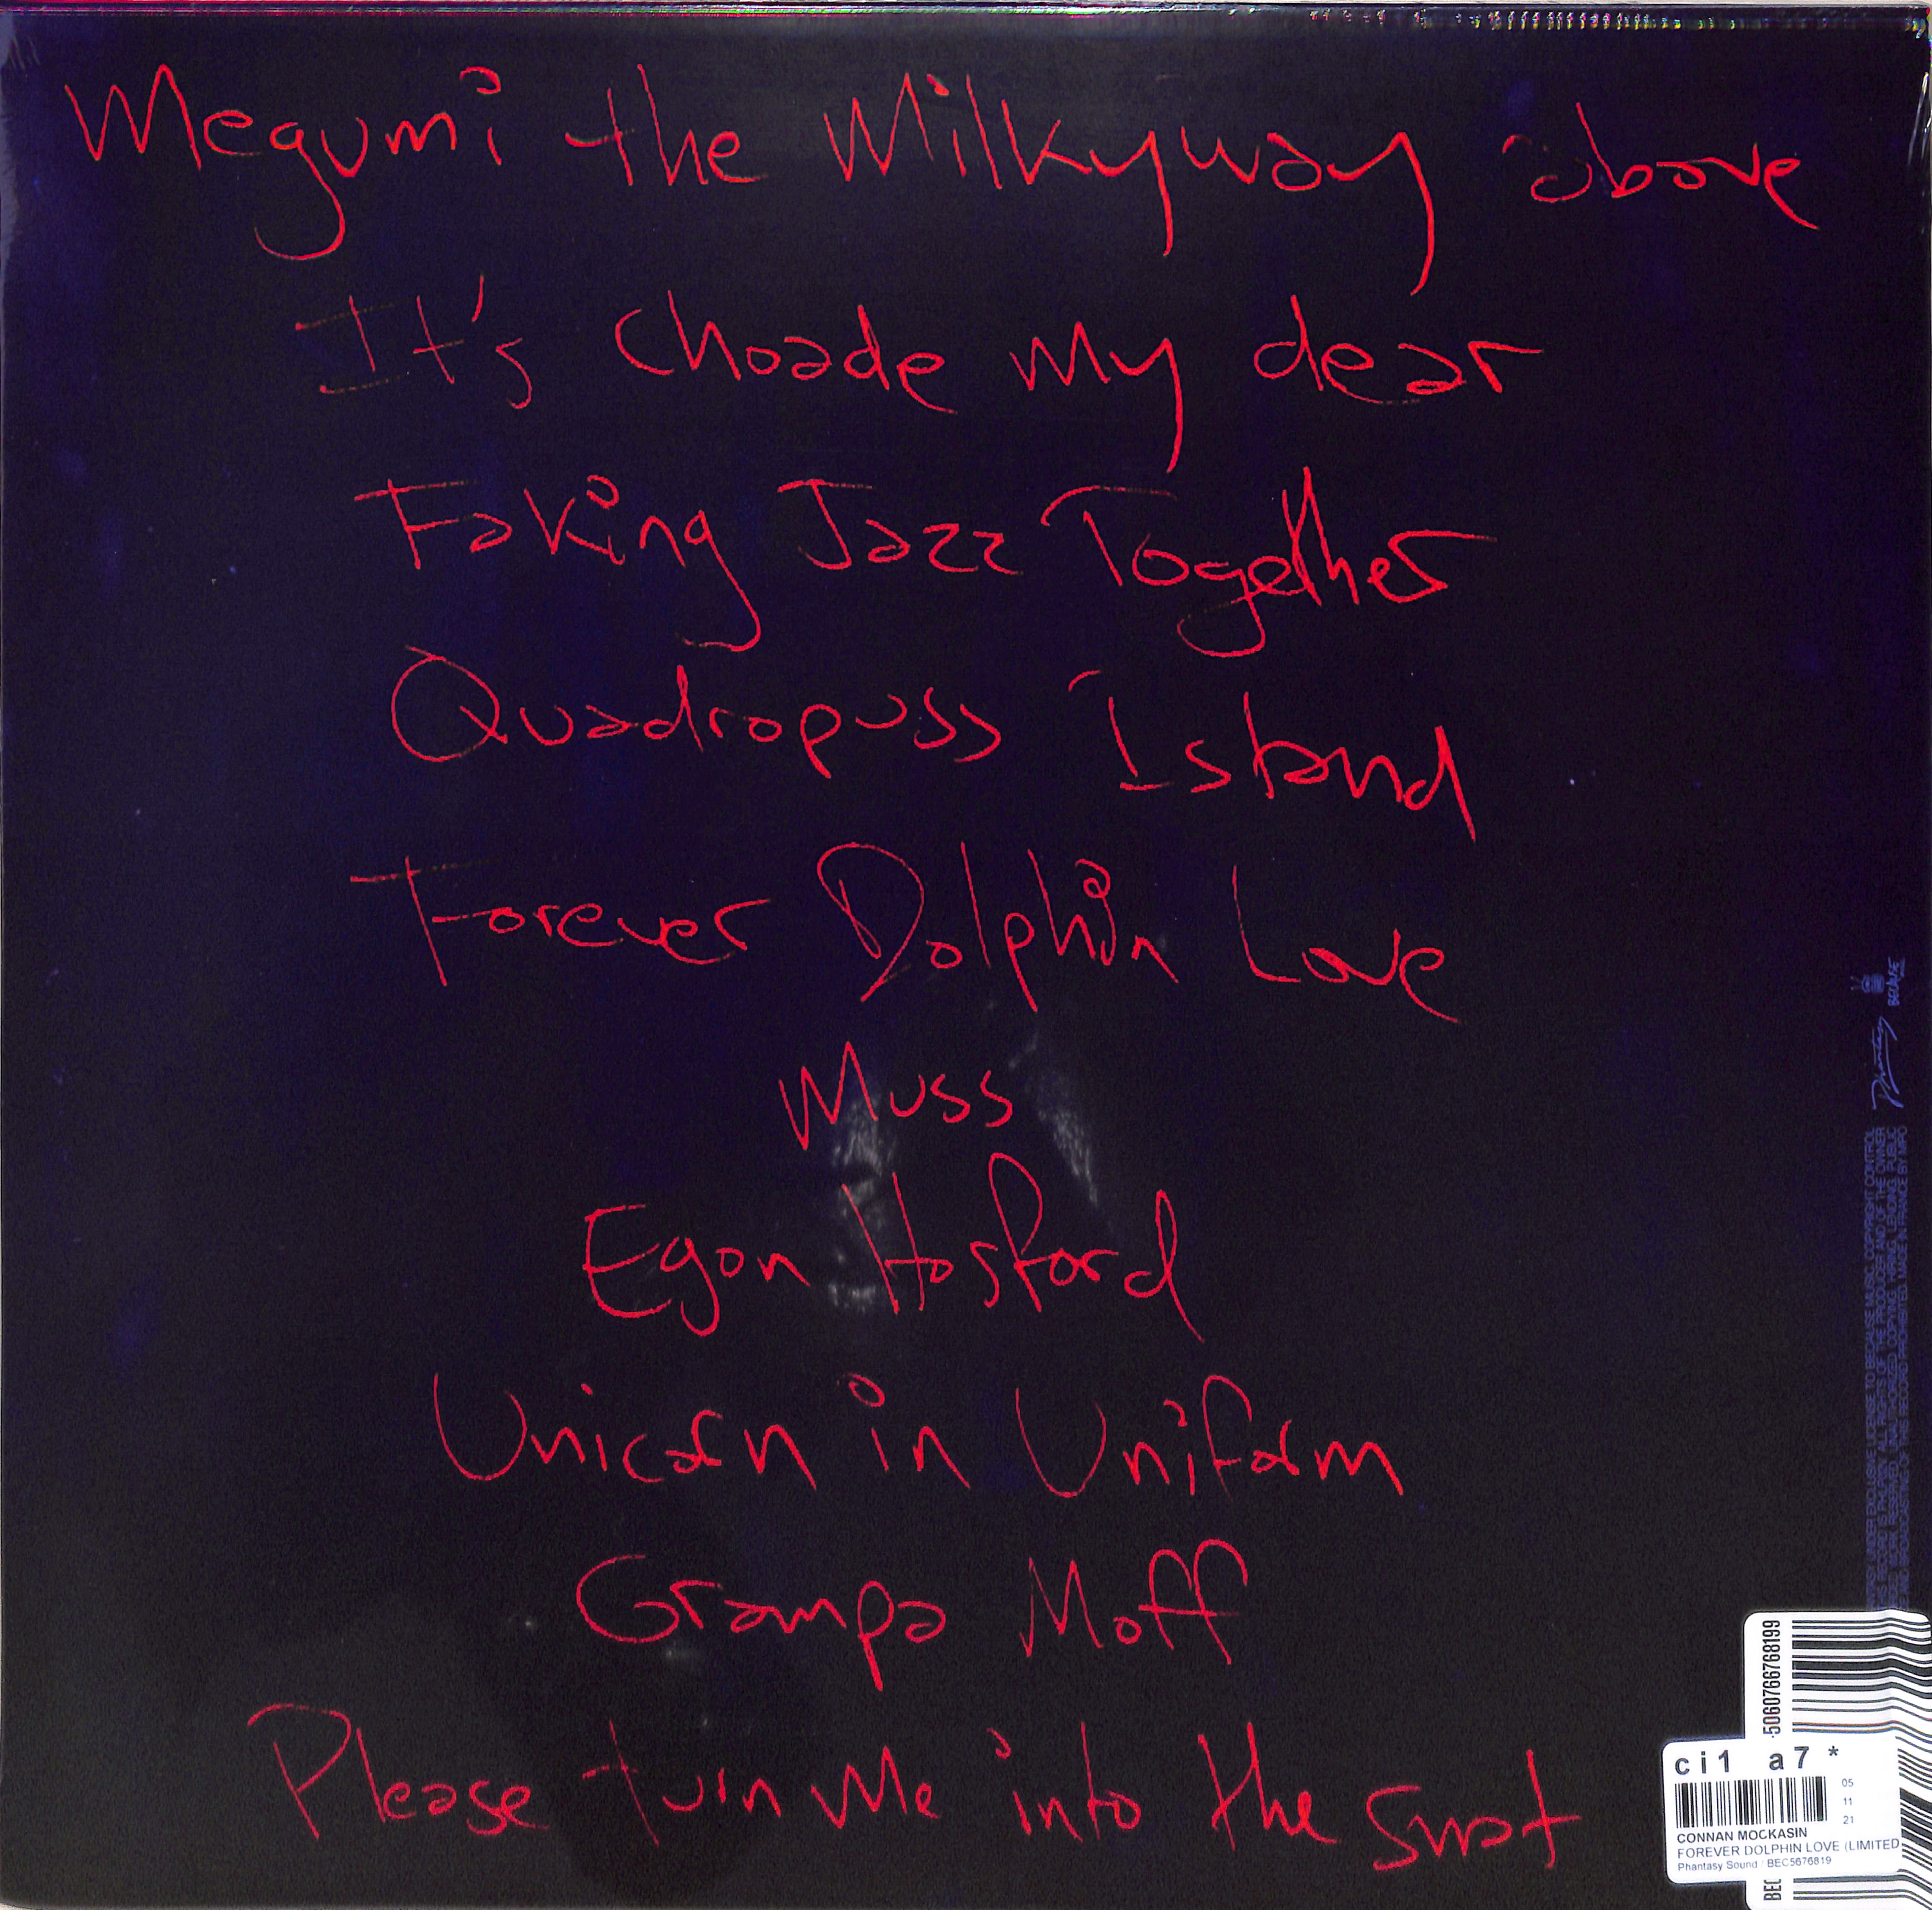 Megumi the Milkyway above
It's Choade my dear
Faking Jazz Together
Quadropuss Island
Forever Dolphin Love
Muss
Egon Hosford
Unicorn in Uniform
Grampa Moff
Please turn Me into the Snat
BECAUSE
Phantasy
UNDER EXCLUSIVE LICENSE TO BECAUSE MUSIC. COPYRIGHT CONTROL
ALL RIGHTS OF THE PRODUCER AND OF THE OWNER
RESERVED. UNAUTHORIZED COPYING, HIRING, LENDING, PUBLIC
BROADCASTING OF THIS RECORD PROHIBITED. MADE IN FRANCE BY MPO
5060766768199
BEC
ci1 a7 *
05
11
21
CONNAN MOCKASIN
FOREVER DOLPHIN LOVE (LIMITED
Phantasy Sound / BEC5676819